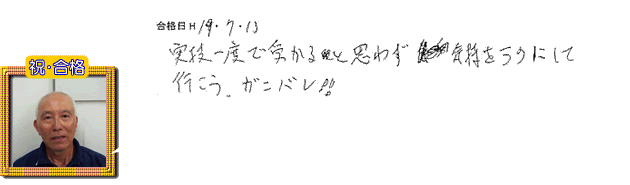 合格日H 19・7・13
実技一度で受かると思わず 気持をラクにして
行こう。ガンバレ!!
祝・合格